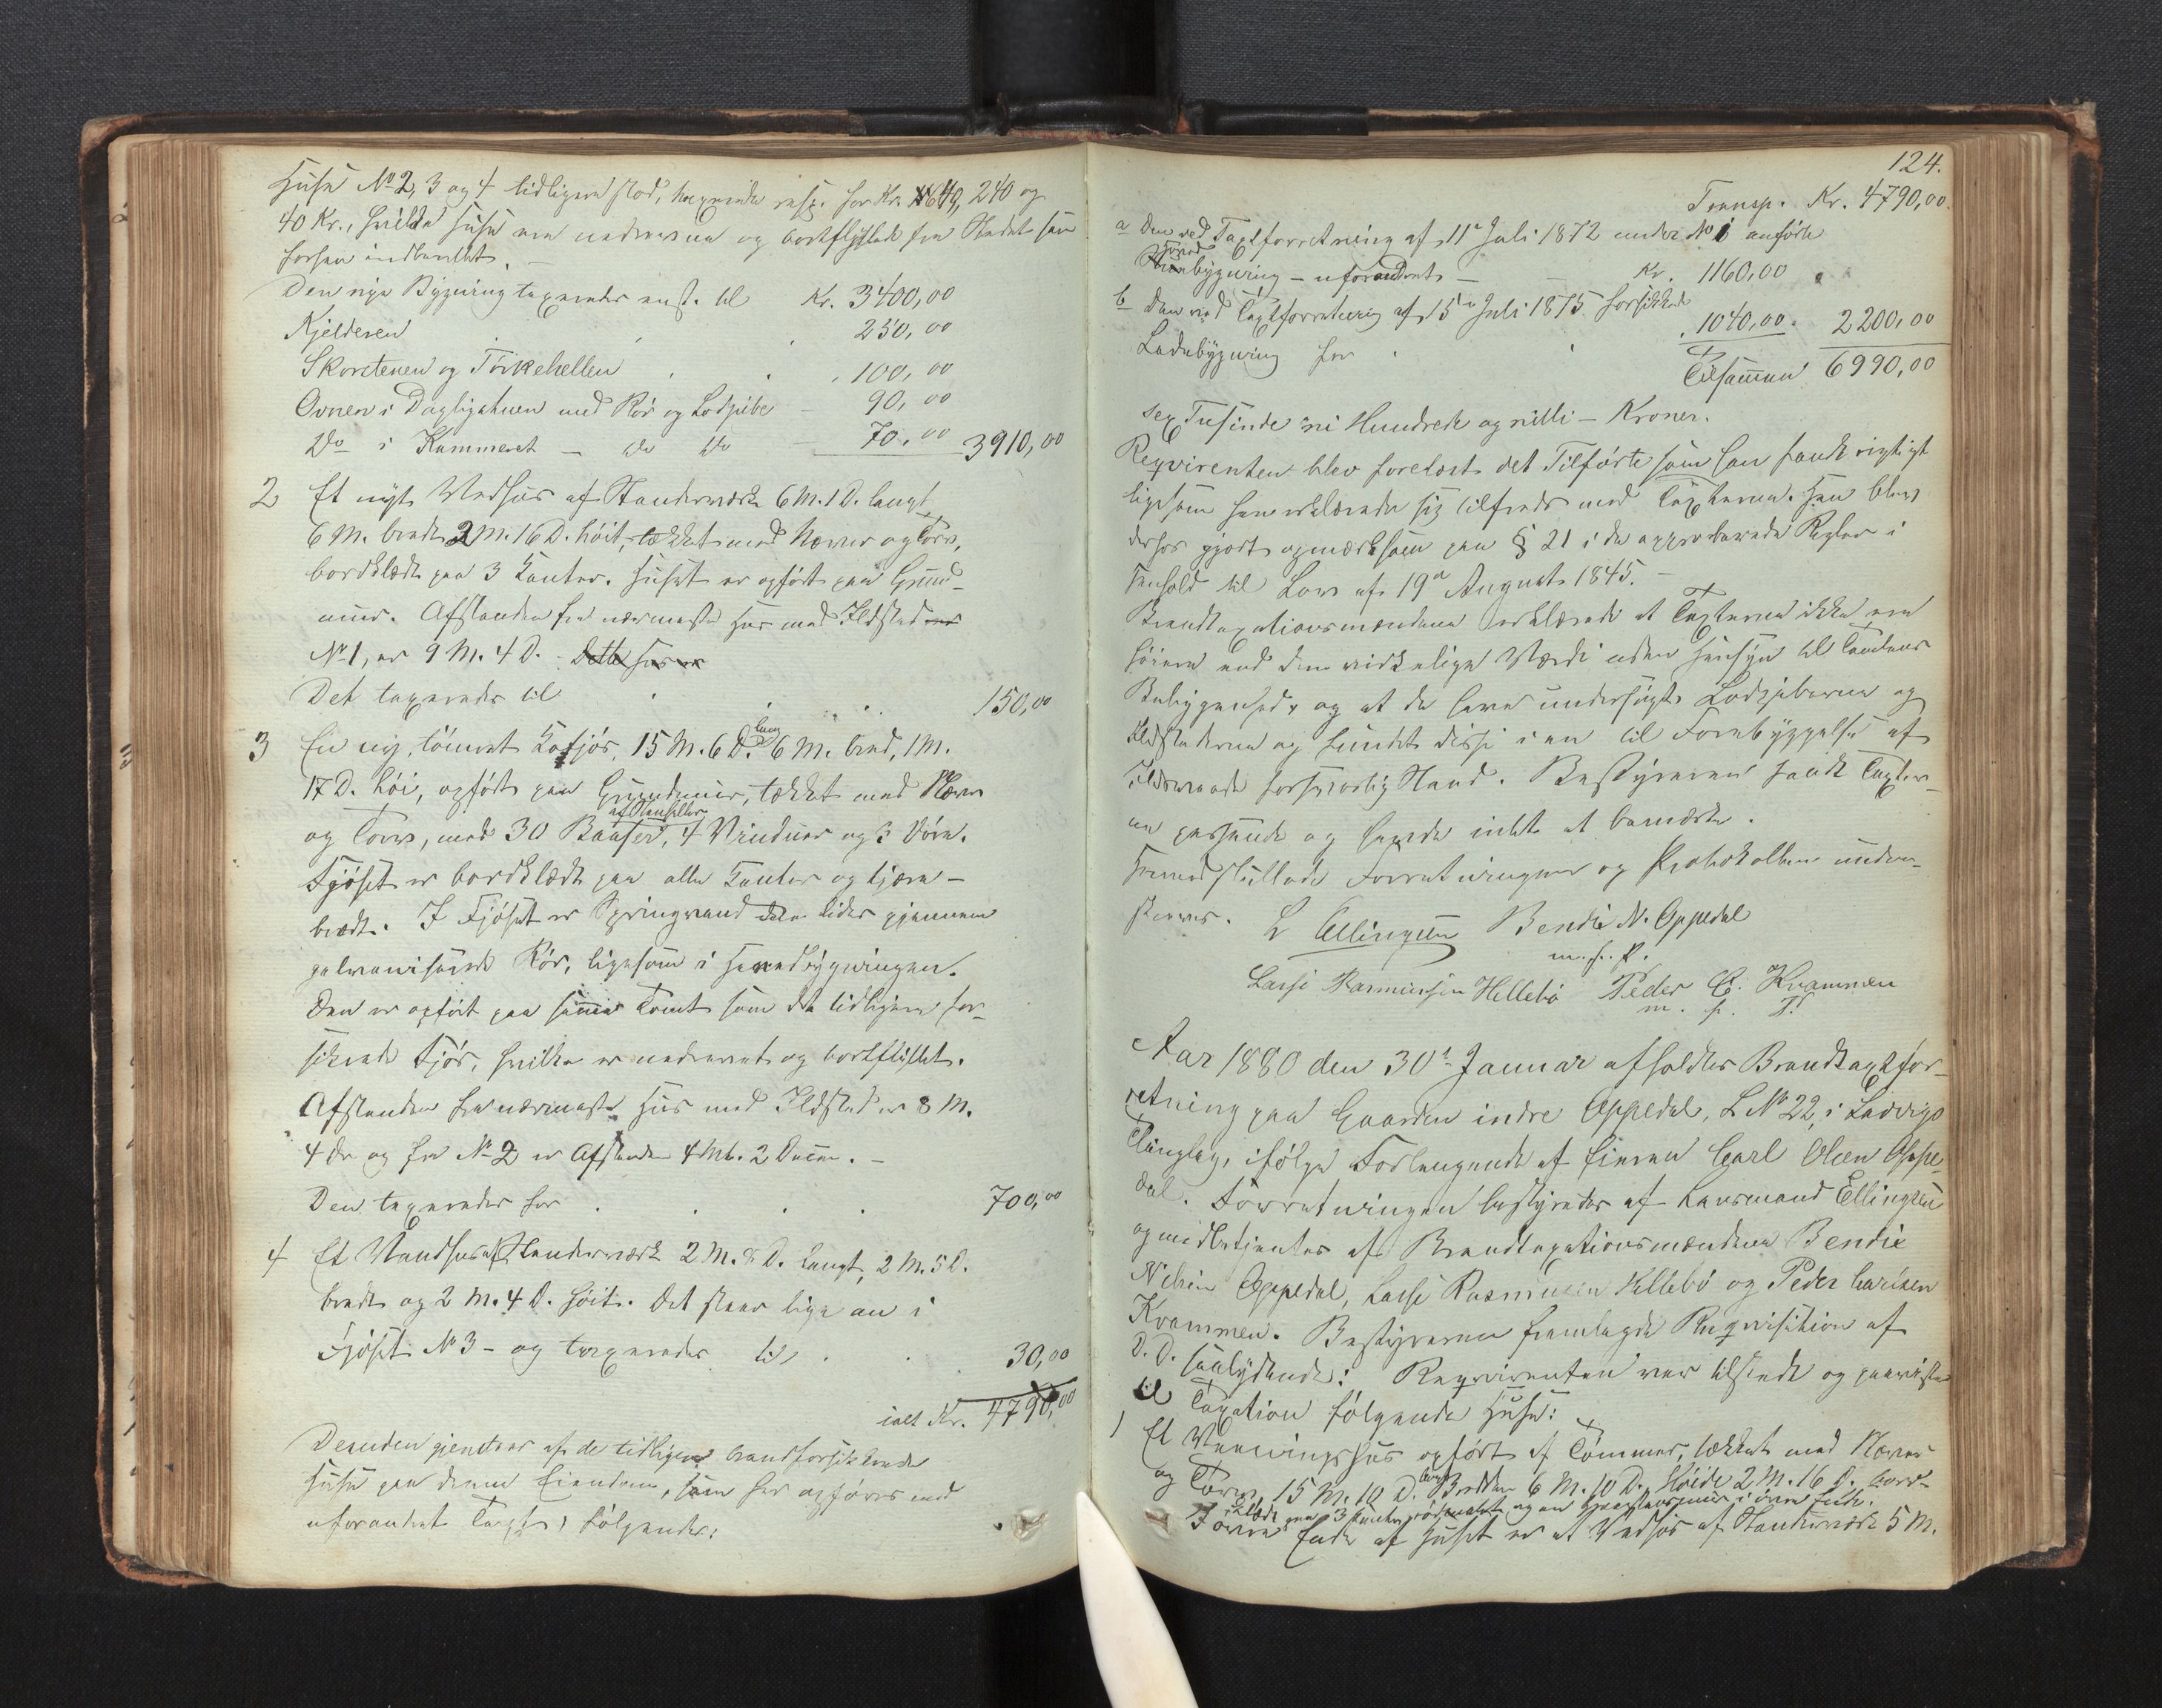 Huse No 2, 3 og 4 tidligere stod, taxerede resp. for Kr. 640, 240 og
40 Kr., hvilke Huse ere nedrevne og bortflyttede fra Stedet som
forhen indberettet. —
Den nye Bygning taxeredes ansl. til Kr. 3400,00
Kjelderen 250,00
Skorstenen og Törkehellen 100,00
Ovnen i Dagligstuen med Rör og Lodpibe - 90,00
Do i Kammeret — do do - 70,00 3910,00
2 Et nyt Vedhus af Standerværk 6 M. 1 D. langt,
6 M. bredt 2 M. 16 D. höit, tækket med Næver og Törv,
bordklædt paa 3 Kanter. Huset er opfört paa Grund-
muur. Afstanden fra nærmeste Hus med Ildsted
No 1, er 9 M. 4 D. - Dette Hus er
Det taxeredes til 150,00
3 En ny, tömret Kofjös, 15 M. 6 D. lang 6 M. bred, 1 M.
17 D. höi, opfört paa Grundmuur, tækket med Næver
og Törv, med 30 Baaser af Stenheller, 4 Vinduer og 3 Döre.
Fjöset er bordklædt paa alle Kanter og tjære-
bredt. I Fjöset er Springvand der ledes gjennem
galvaniserede Rör, ligesom i Hovedbygningen.
Den er opfört paa samme Tomt som det tidligere for-
sikrede Fjös, hvilke er nedrevet og bortflyttet.
Afstanden fra nærmeste Hus med Ildsted er 8 M.
4 De og fra No 2 er Afstanden 4 Mt. 2 Decim. —
Den taxeredes for 700,00
4 Et Vandhus af Standerværk 2 M. 8 D. langt, 2 M. 5 D.
bredt og 2 M. 4 D. höit. Det staar lige an i
Fjöset No 3 - og taxeredes til 30,00
ialt Kr. 4790,00
Desuden gjenstaar af de tidligere brandforsikrede
Huse paa denne Eiendom, som her opföres med
uforandret Taxt, fölgende:
124.
Transp. Kr. 4790,00.
a Den ved Taxtforretning af 11te Juli 1872 under No 1 anförte
bygning - uforandret — Kr. 1160,00
b Den ved Taxtforretning af 15de Juli 1875 forsikrede
Ladebygning for 1040,00. 2200,00
Tilsammen 6990,00
sex Tusinde ni Hundrede og nitti - Kroner.
Reqvirenten blev forelæst det Tilförte som han fandt rigtigt
ligesom han erklærede sig tilfreds med Taxterne. Han blev
derhos gjort opmærksom paa § 21 i de approberede Regler i
Henhold til Lov af 19de August 1845. —
Brandtaxationsmændene erklærede at Taxterne ikke ere
höiere end den virkelige Værdi uden Hensyn til Tomtens
Beliggenhed, og at de have undersögt Lodpiberne og
Ildstederne og fundet disse i en til Forebyggelse af
Ildsvaade forsvarlig Stand. Bestyreren fandt Taxter-
ne passende og havde intet at bemærke.
Hermed sluttede Forretningen og Protokollen under-
skreves. L Ellingsen Bendix N. Oppedal
m. p. P.
Lasse Rasmussen Hellebö Peder C. Kvammen
m. p. P.
Aar 1880 den 30te Januar afholdtes Brandtaxtfor-
retning paa Gaarden indre Oppedal, L No 22, i Ladvigs
Thinglag, ifölge Forlangende af Eieren Carl Olsen Oppe-
dal. Forretningen bestyredes af Lensmand Ellingsen
og medbetjentes af Brandtaxationsmændene Bendix
Nilsen Oppedal, Lasse Rasmussen Hellebö og Peder Larsen
Kvammen. Bestyreren fremlagde Reqvisition af
D. D. saalydende: Reqvirenten var tilstede og paaviste
til Taxation fölgende Huse:
1 Et Vaaningshus opfört af Tömmer, tækket med Næver
og Törv, 15 M. 10 D. langt Bredde 6 M. 10 D., Höide 2 M. 16 D. bord-
klædt paa 3 Kanter, og en i övre Ende.
I övre Ende af Huset er et Vedhus af Standerværk 5 M.